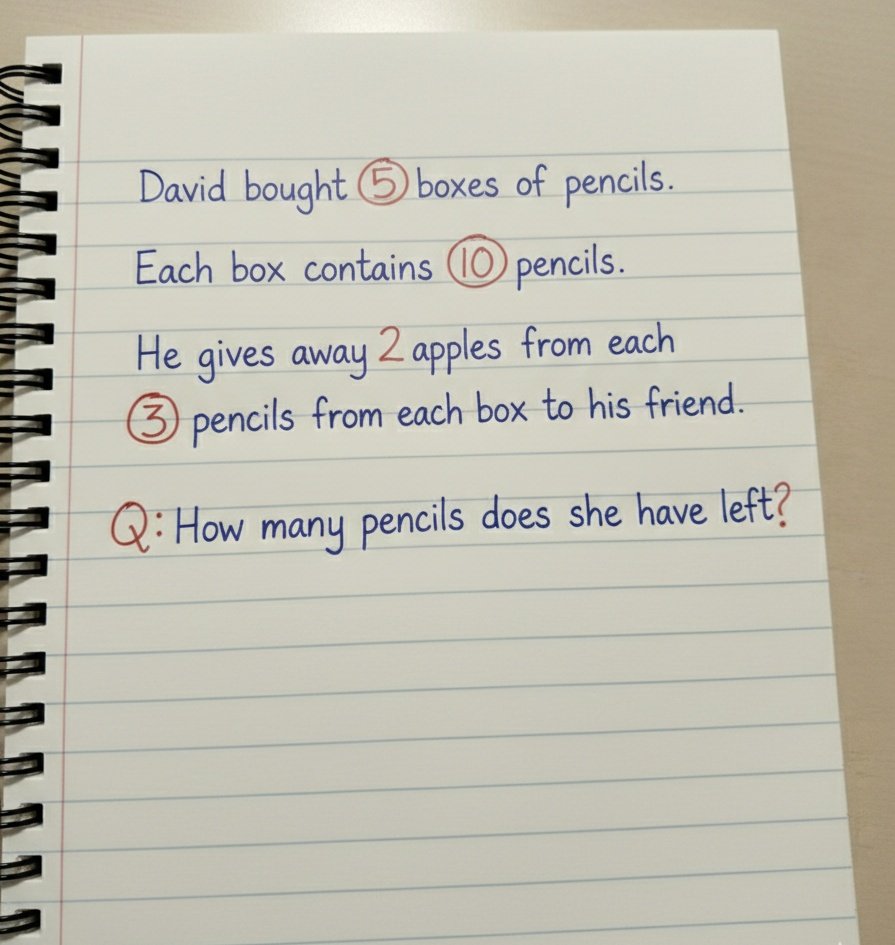 David bought 5 boxes of pencils.
Each box contains 10 pencils.
He gives away 2 apples from each
3 pencils from each box to his friend.
Q: How many pencils does she have left?